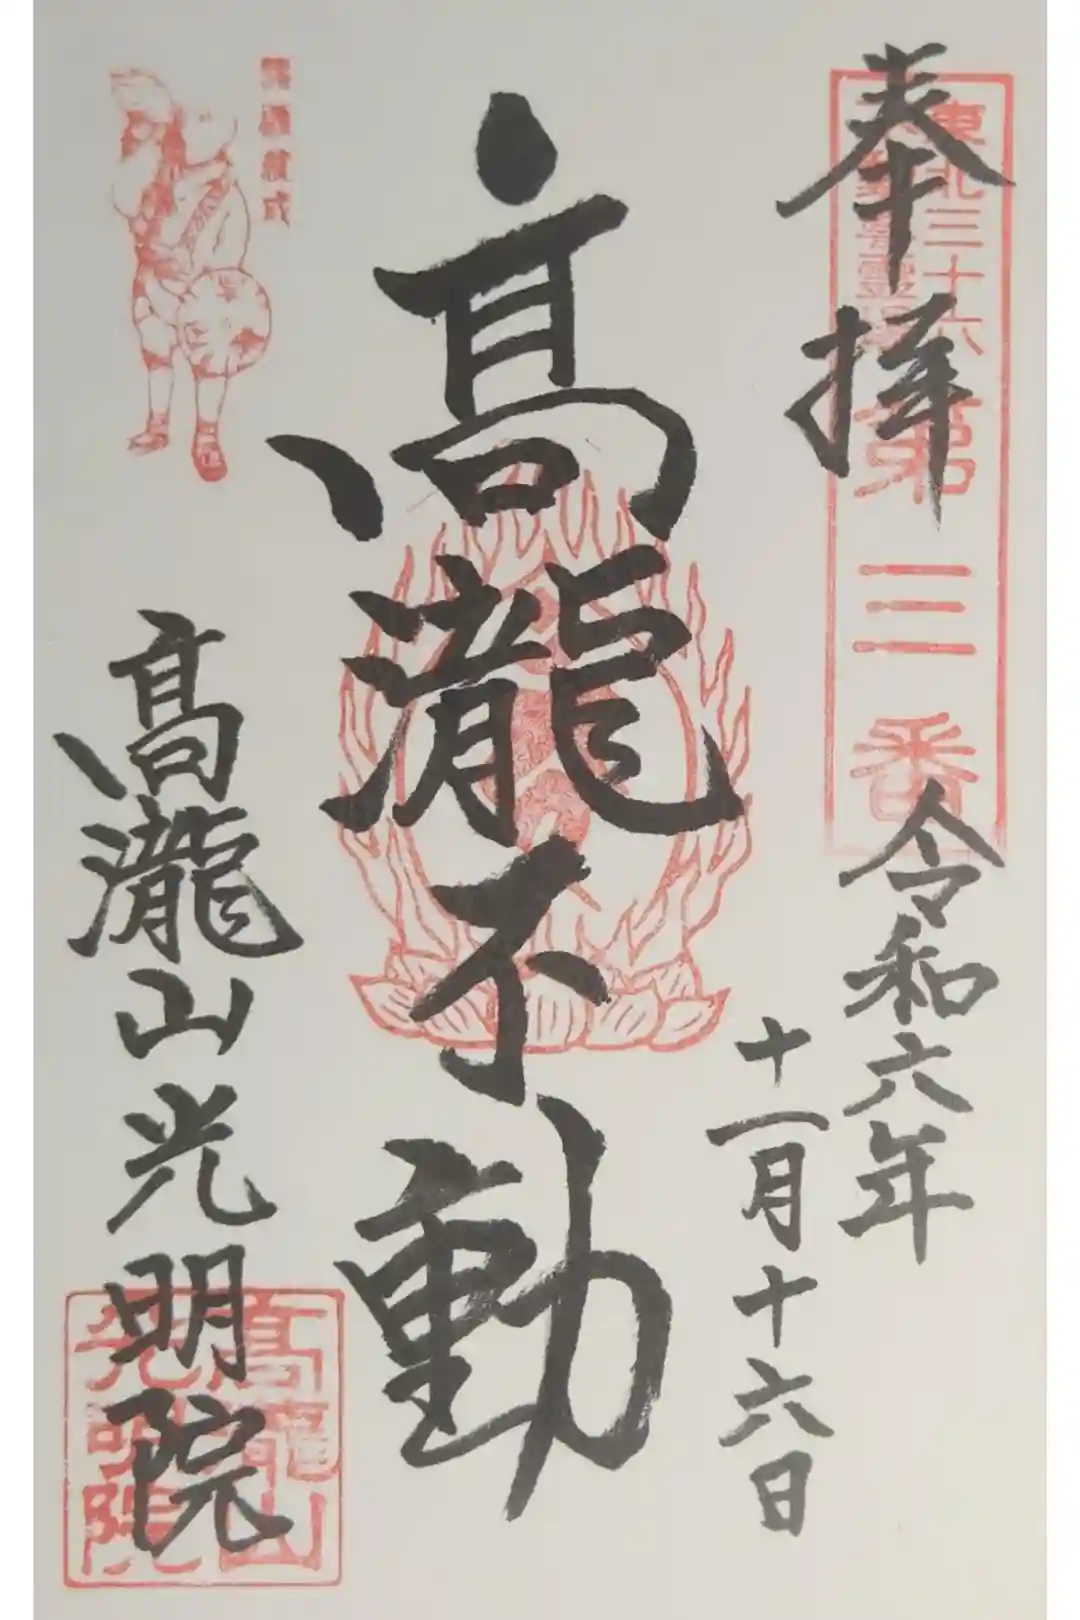 奉拝
令和六年
十一月十六日
東北三十六
不動尊霊場
第三番
高瀧不動
高瀧山光明院
高瀧山
光明院